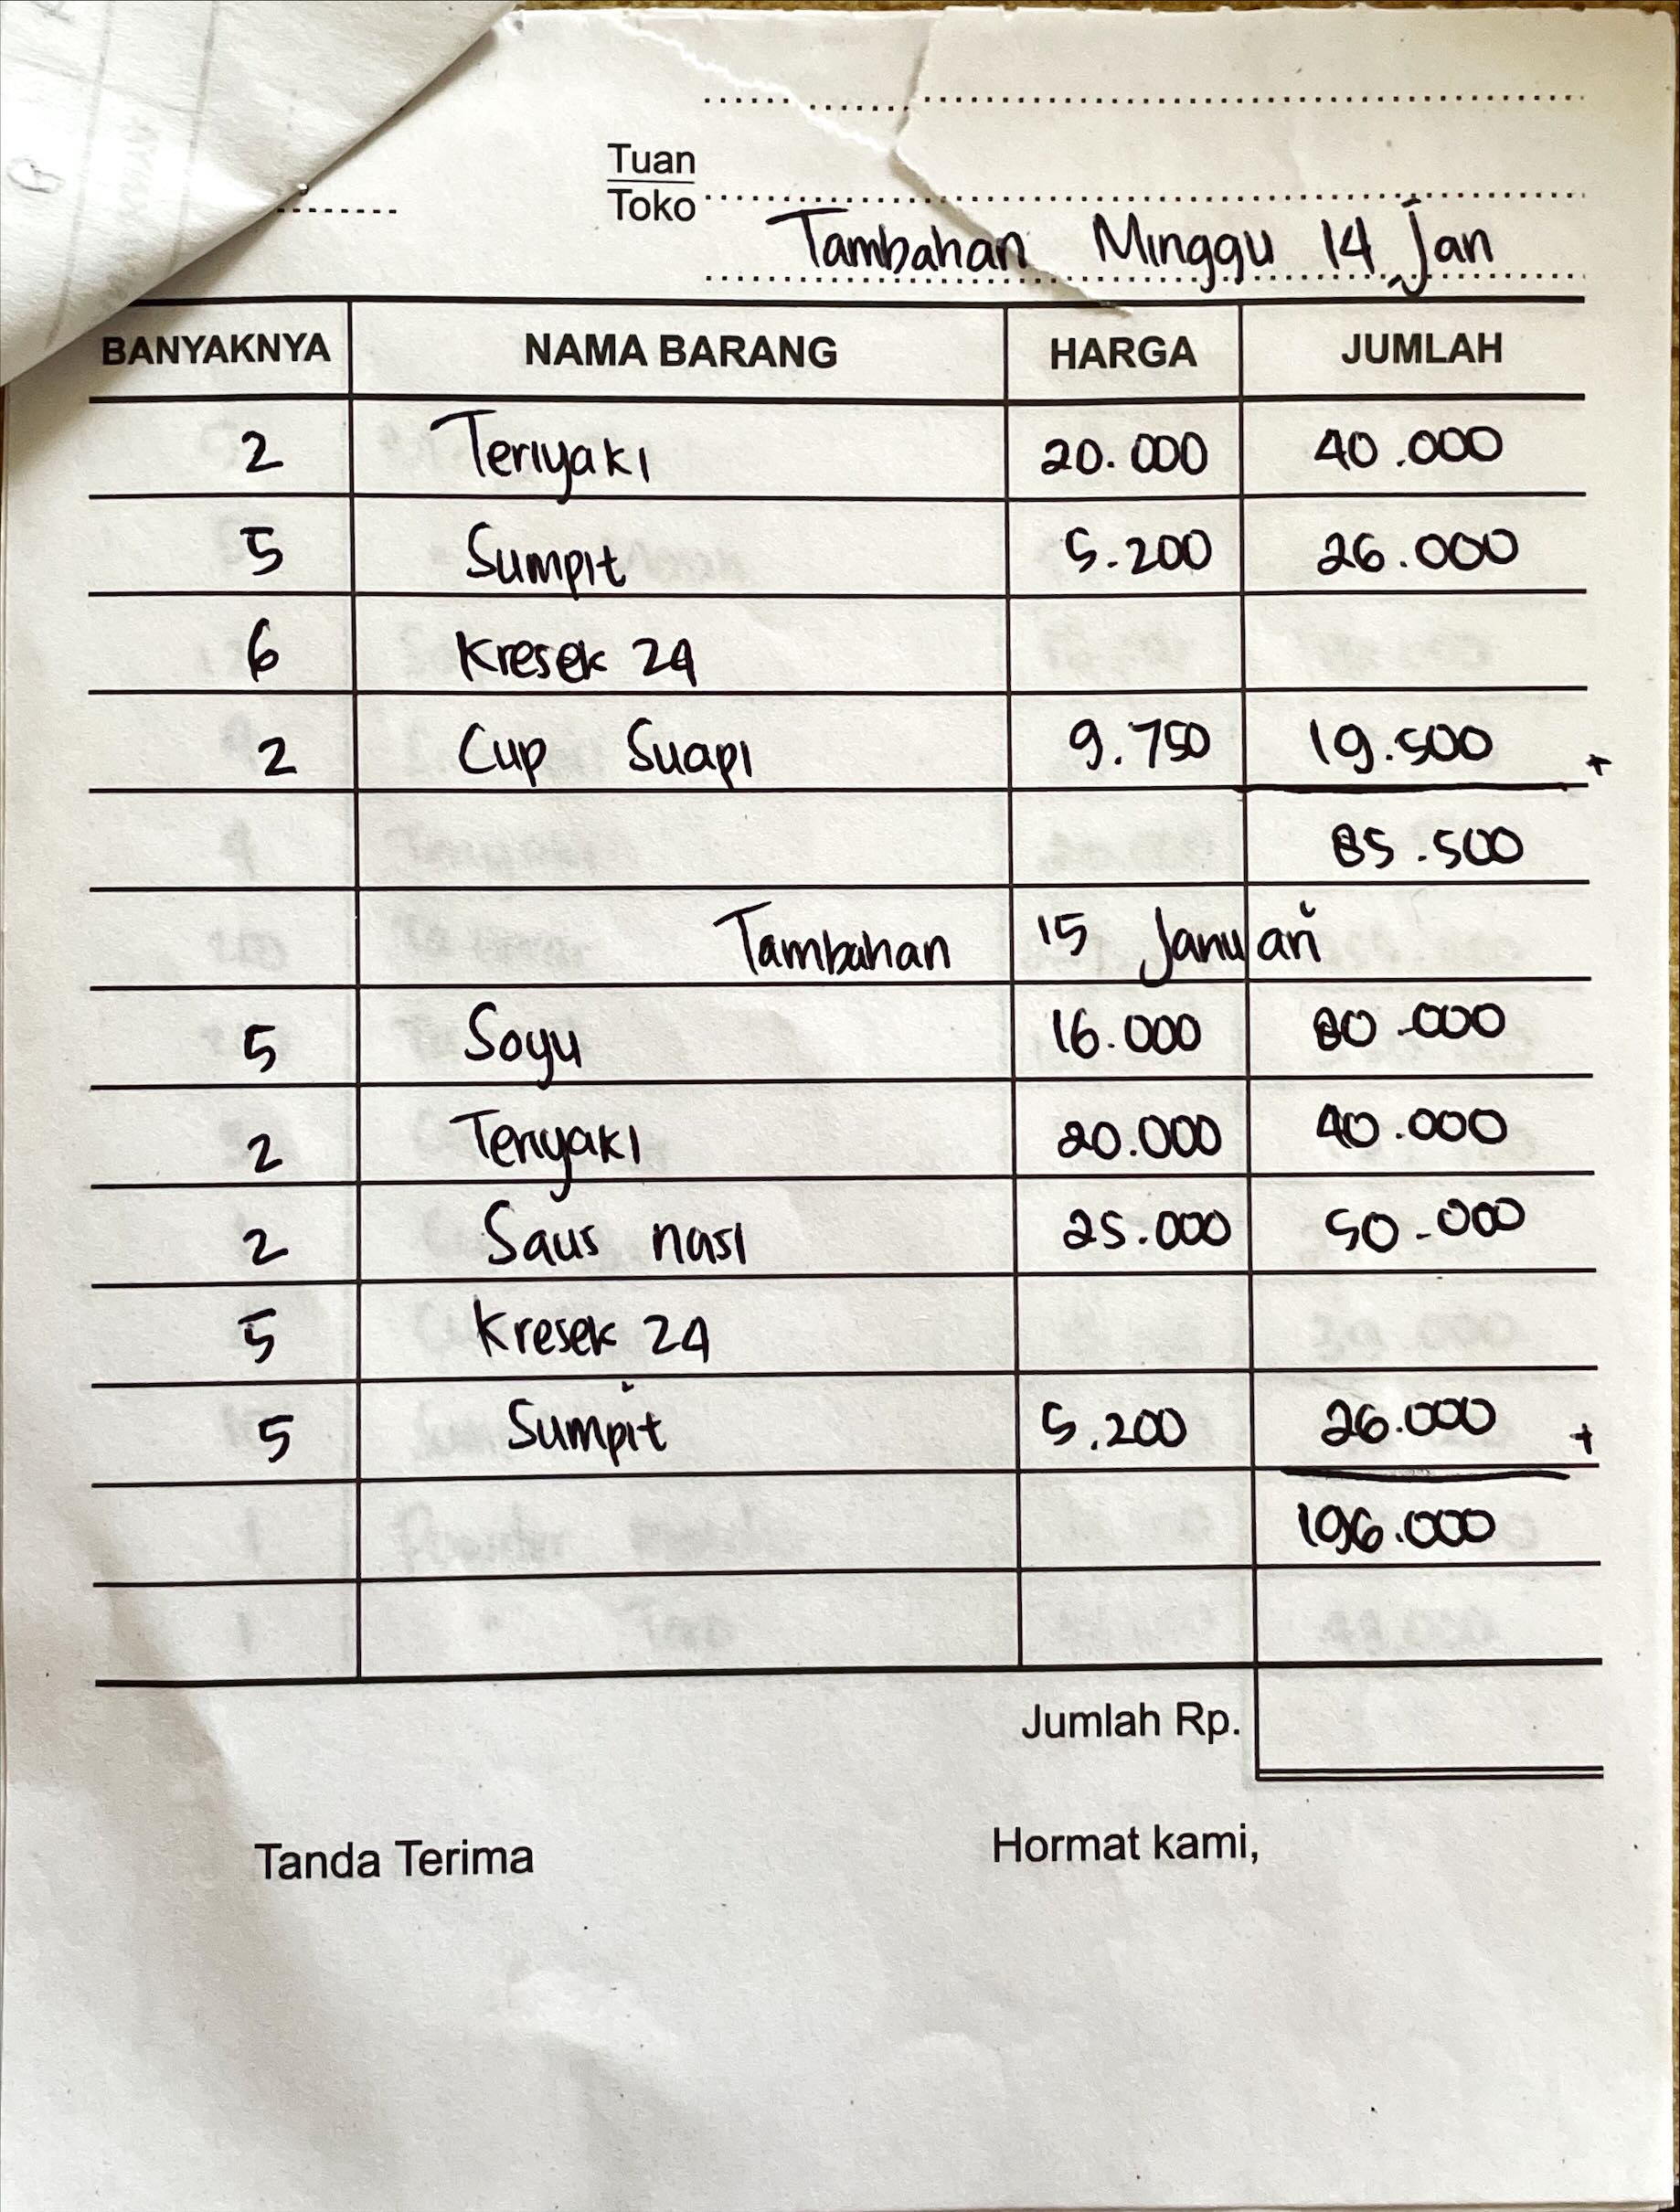 Tuan
Toko
Tambahan Minggu 14 Jan
BANYAKNYA NAMA BARANG HARGA JUMLAH
2 Teriyaki 20.000 40.000
5 Sumpit 5.200 26.000
6 Kresek 24
2 Cup Suapi 9.750 19.500 +
85.500
Tambahan 15 Januari
5 Soyu 16.000 80.000
2 Teriyaki 20.000 40.000
2 Saus nasi 25.000 50.000
5 Kresek 24
5 Sumpit 5.200 26.000 +
196.000
Jumlah Rp.
Tanda Terima Hormat kami,